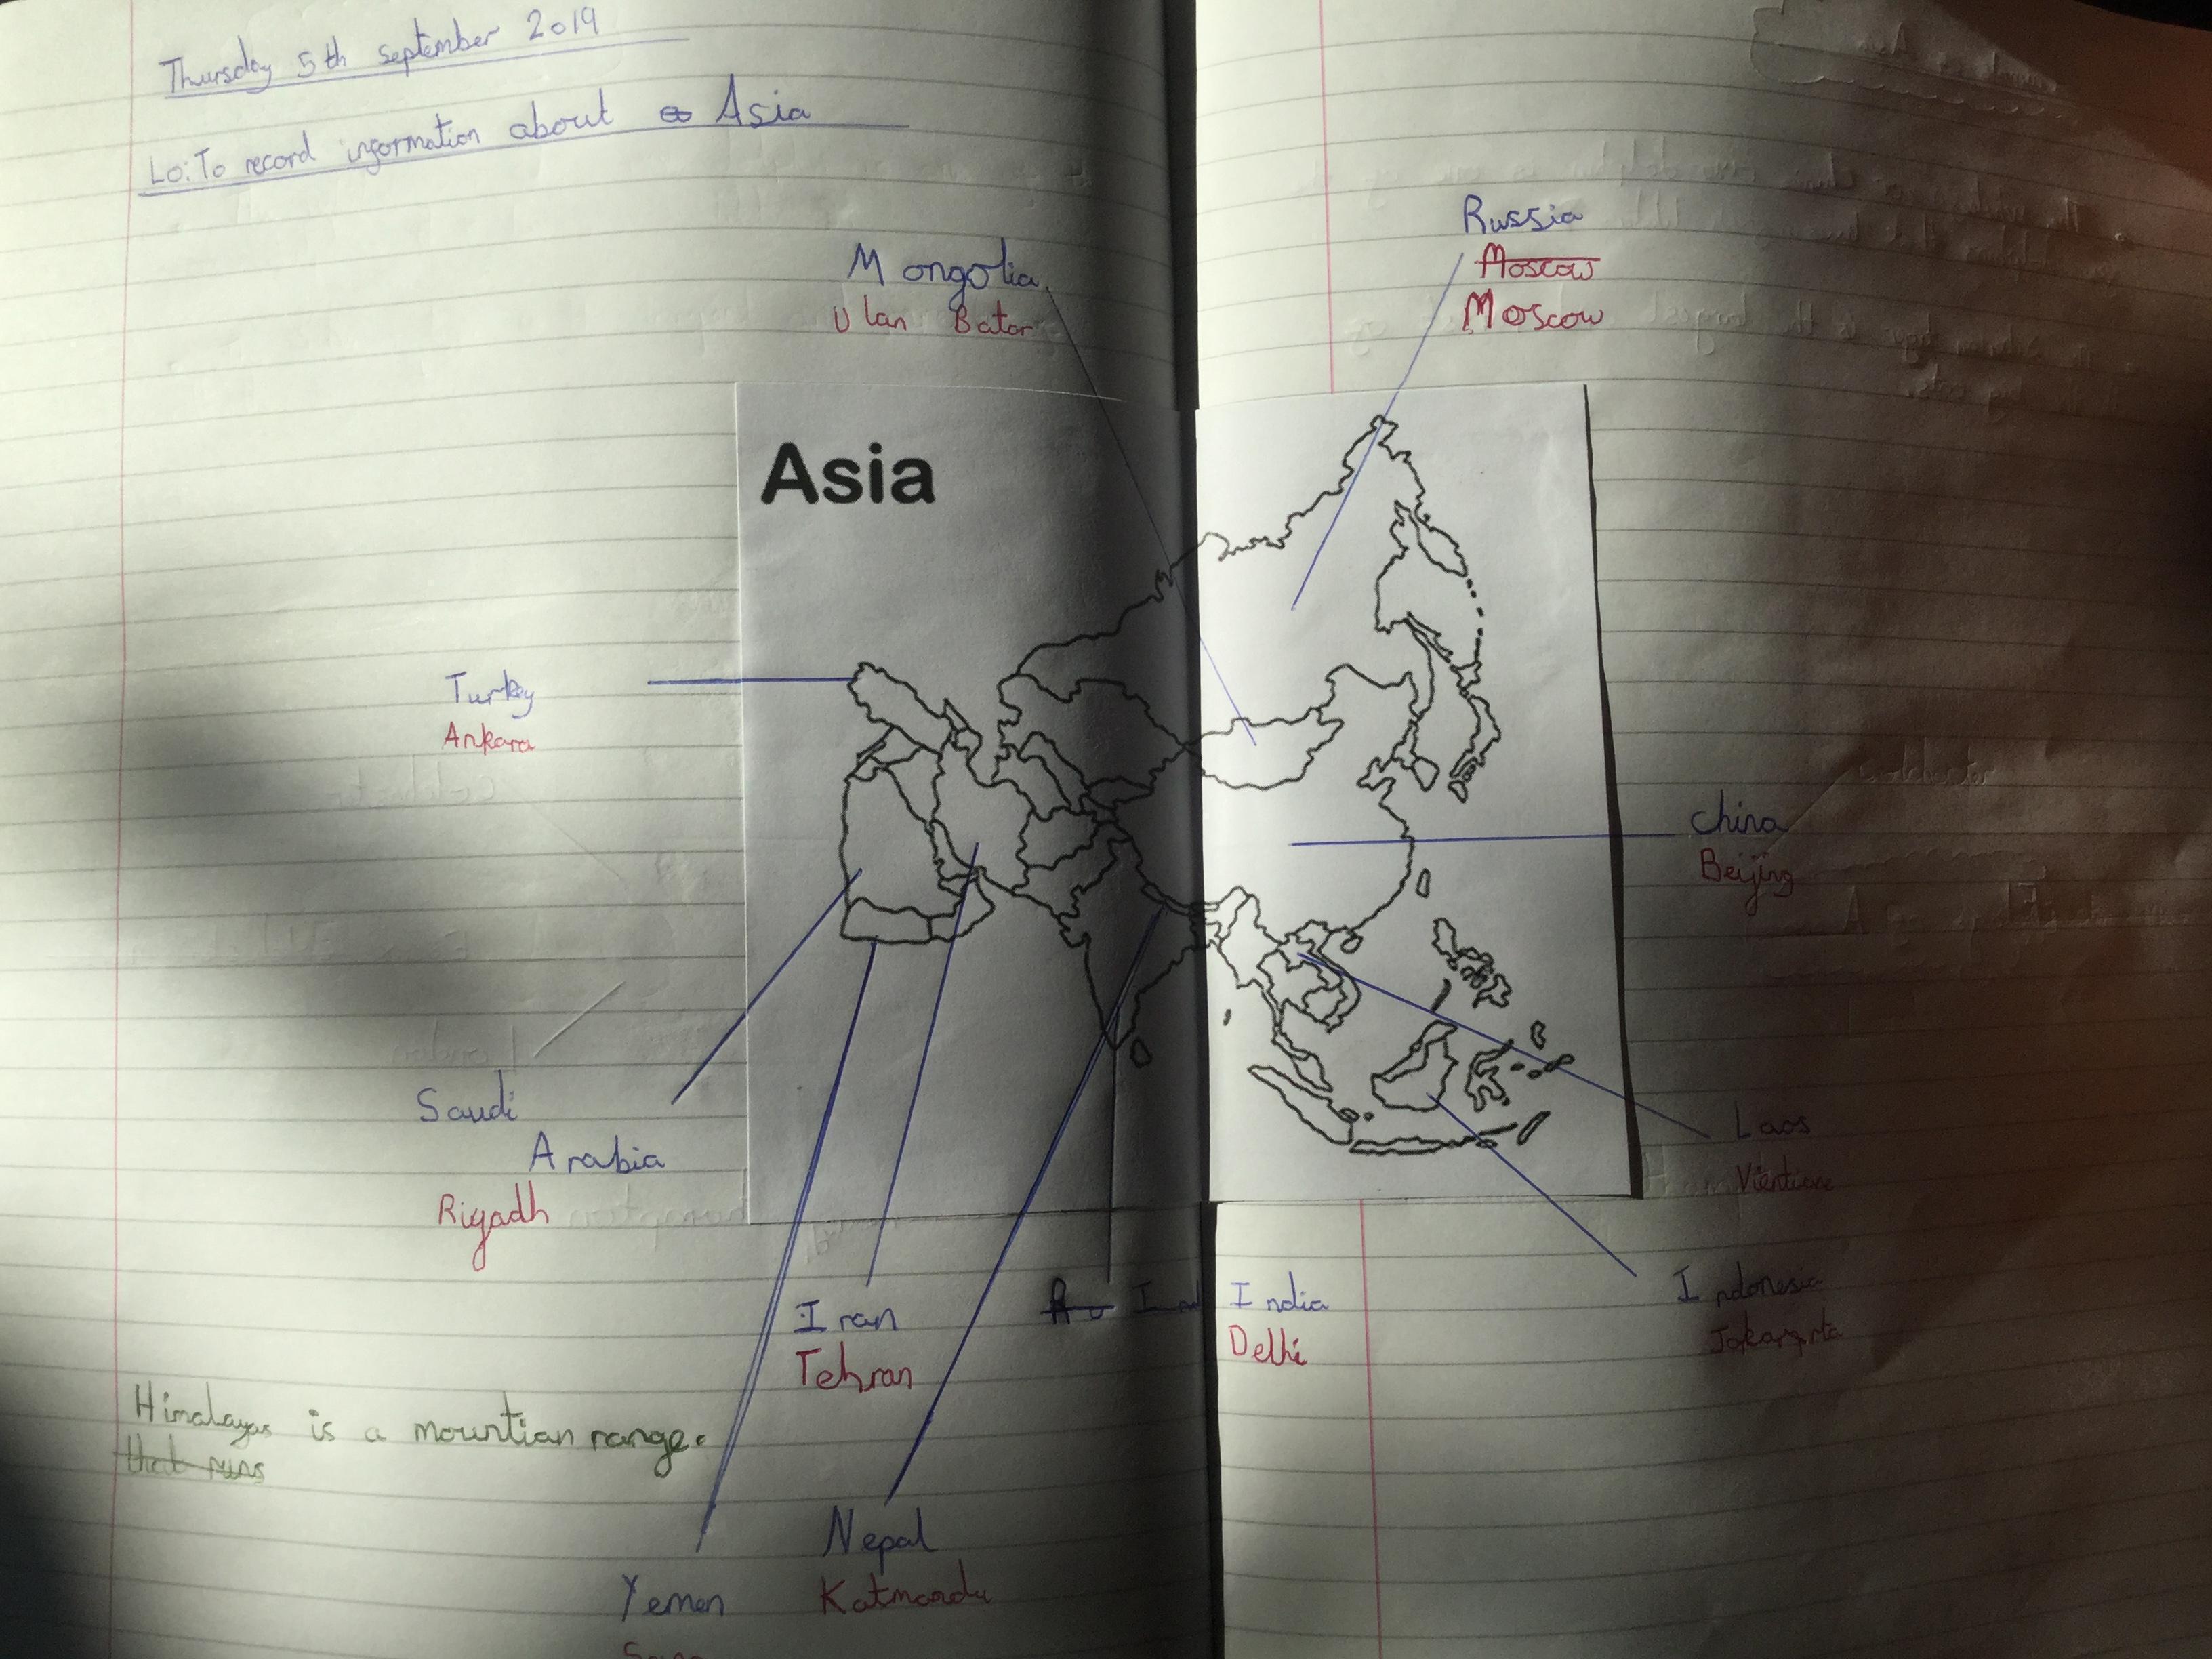 Thursday 5th September 2019
LO: To record information about Asia
Mongolia
Ulan Bator
Russia
Moscow
Moscow
Asia
Turkey
Ankara
China
Beijing
Saudi
Arabia
Riyadh
Laos
Vientiane
Iran
Tehran
India
Delhi
Indonesia
Himalayas is a mountian range.
that runs
Nepal
Katmandu
Yemen